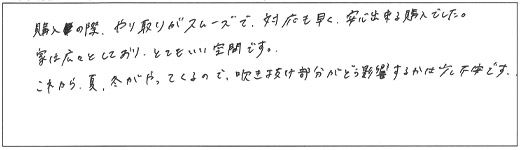 購入の際、やり取りがスムーズで、対応も早く、安心出来る購入でした。
家は広々としており、とてもいい空間です。
これから、夏、冬がやってくるので、吹き抜け部分がどう影響するかは少し不安です。